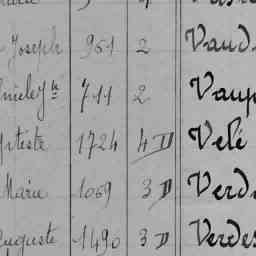 Joseph 951 2 Vaud
711 2 Vaup
ptiste 1724 4 D Velé
Marie 1069 3 D Verd
Auguste 1490 3 D Verdes